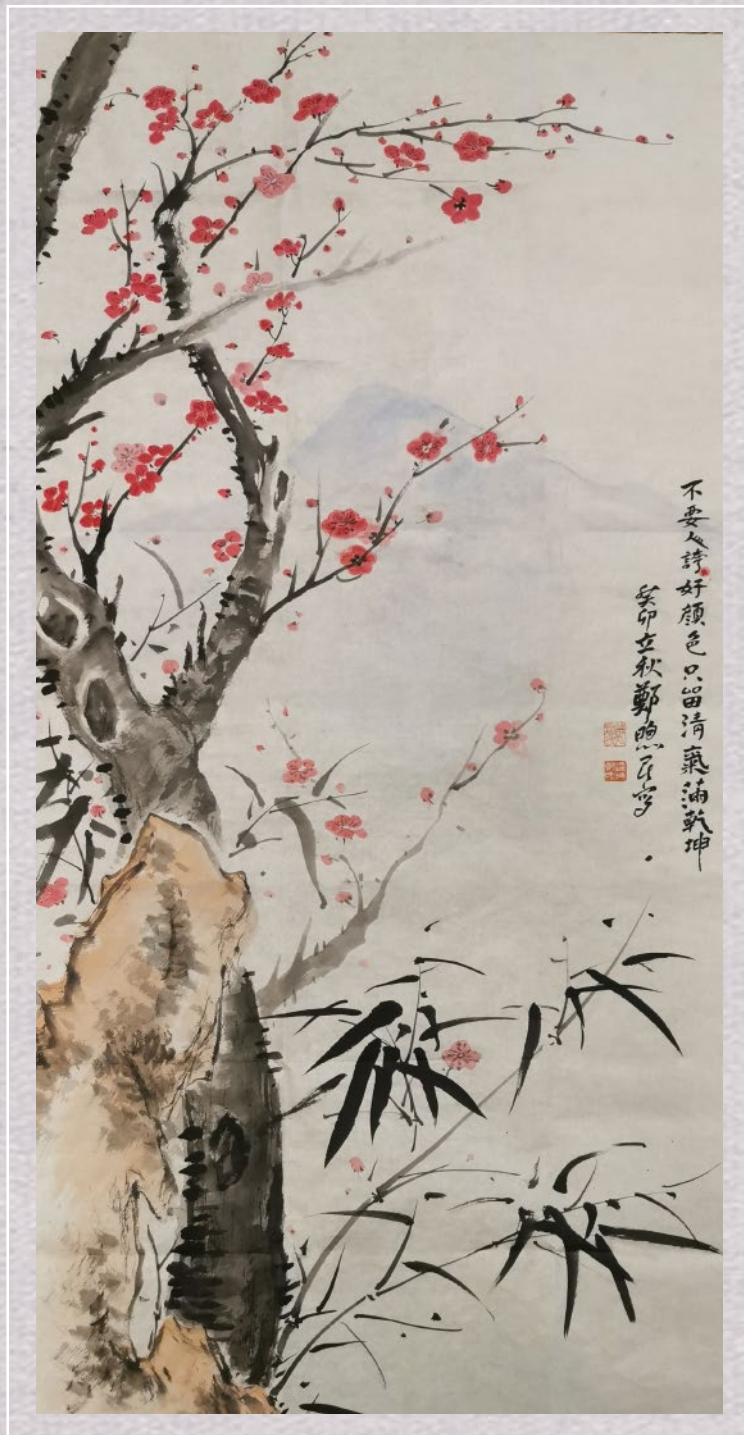 不要人誇好顏色只留清氣滿乾坤
癸卯立秋鄭煦民寫